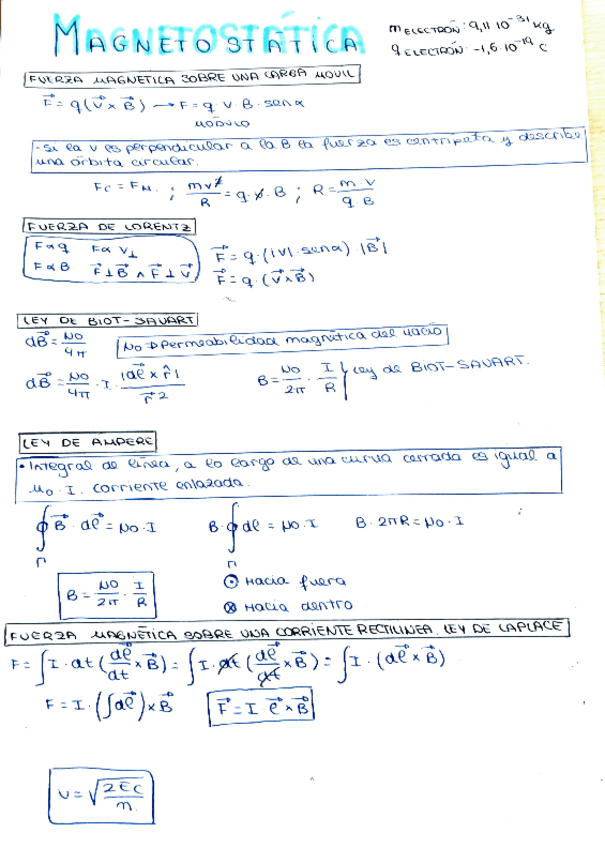 MAGNETOSTÁTICA
m ELECTRÓN: 9,11·10⁻³¹ kg
q ELECTRÓN: -1,6·10⁻¹⁹ C
FUERZA MAGNÉTICA SOBRE UNA CARGA MÓVIL
F⃗ = q(V⃗ x B⃗) → F = q·V·B·senα
MÓDULO
- Si la V es perpendicular a la B la fuerza es centrípeta y describe
una órbita circular.
Fc = FM. ; mv²/R = q·v·B ; R = m·v/q·B
FUERZA DE LORENTZ
F∝q F∝V⊥
F∝B F⃗⊥B⃗ ∧ F⃗⊥V⃗
F⃗ = q·(|V|·senα) |B⃗|
F⃗ = q·(V⃗xB⃗)
LEY DE BIOT-SAVART
dB⃗ = μo/4π
μo → Permeabilidad magnética del vacío
dB⃗ = μo/4π · I · |dℓ⃗ x r̂|/r⃗²
B = μo/2π · I/R } Ley de BIOT-SAVART.
LEY DE AMPERE
• Integral de línea, a lo largo de una curva cerrada es igual a
μo·I. corriente enlazada.
∮Γ B⃗·dℓ⃗ = μo·I B·∮Γ dℓ = μo·I B·2πR = μo·I
B = μo/2π · I/R
⊙ Hacia fuera
⊗ Hacia dentro
FUERZA MAGNÉTICA SOBRE UNA CORRIENTE RECTILINEA. LEY DE LAPLACE
F = ∫I·dt(dℓ⃗/dt x B⃗) = ∫I·dt(dℓ⃗/dt x B⃗) = ∫I·(dℓ⃗ x B⃗)
F = I·(∫dℓ⃗) x B⃗ F⃗ = I ℓ⃗ x B⃗
v = √(2Ec/m)